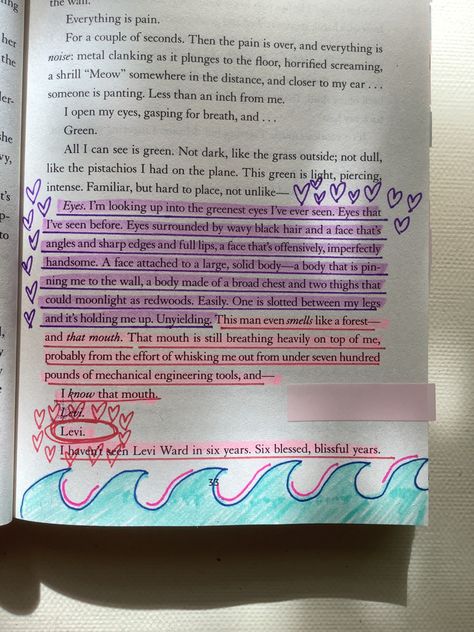 the wall.
Everything is pain.
For a couple of seconds. Then the pain is over, and everything is
noise: metal clanking as it plunges to the floor, horrified screaming,
a shrill “Meow” somewhere in the distance, and closer to my ear . . .
someone is panting. Less than an inch from me.
I open my eyes, gasping for breath, and . . .
Green.
All I can see is green. Not dark, like the grass outside; not dull,
like the pistachios I had on the plane. This green is light, piercing,
intense. Familiar, but hard to place, not unlike—
Eyes. I’m looking up into the greenest eyes I’ve ever seen. Eyes that
I’ve seen before. Eyes surrounded by wavy black hair and a face that’s
angles and sharp edges and full lips, a face that’s offensively, imperfectly
handsome. A face attached to a large, solid body—a body that is pin-
ning me to the wall, a body made of a broad chest and two thighs that
could moonlight as redwoods. Easily. One is slotted between my legs
and it’s holding me up. Unyielding. This man even smells like a forest—
and that mouth. That mouth is still breathing heavily on top of me,
probably from the effort of whisking me out from under seven hundred
pounds of mechanical engineering tools, and—
I know that mouth.
Levi.
Levi.
I haven’t seen Levi Ward in six years. Six blessed, blissful years.
33